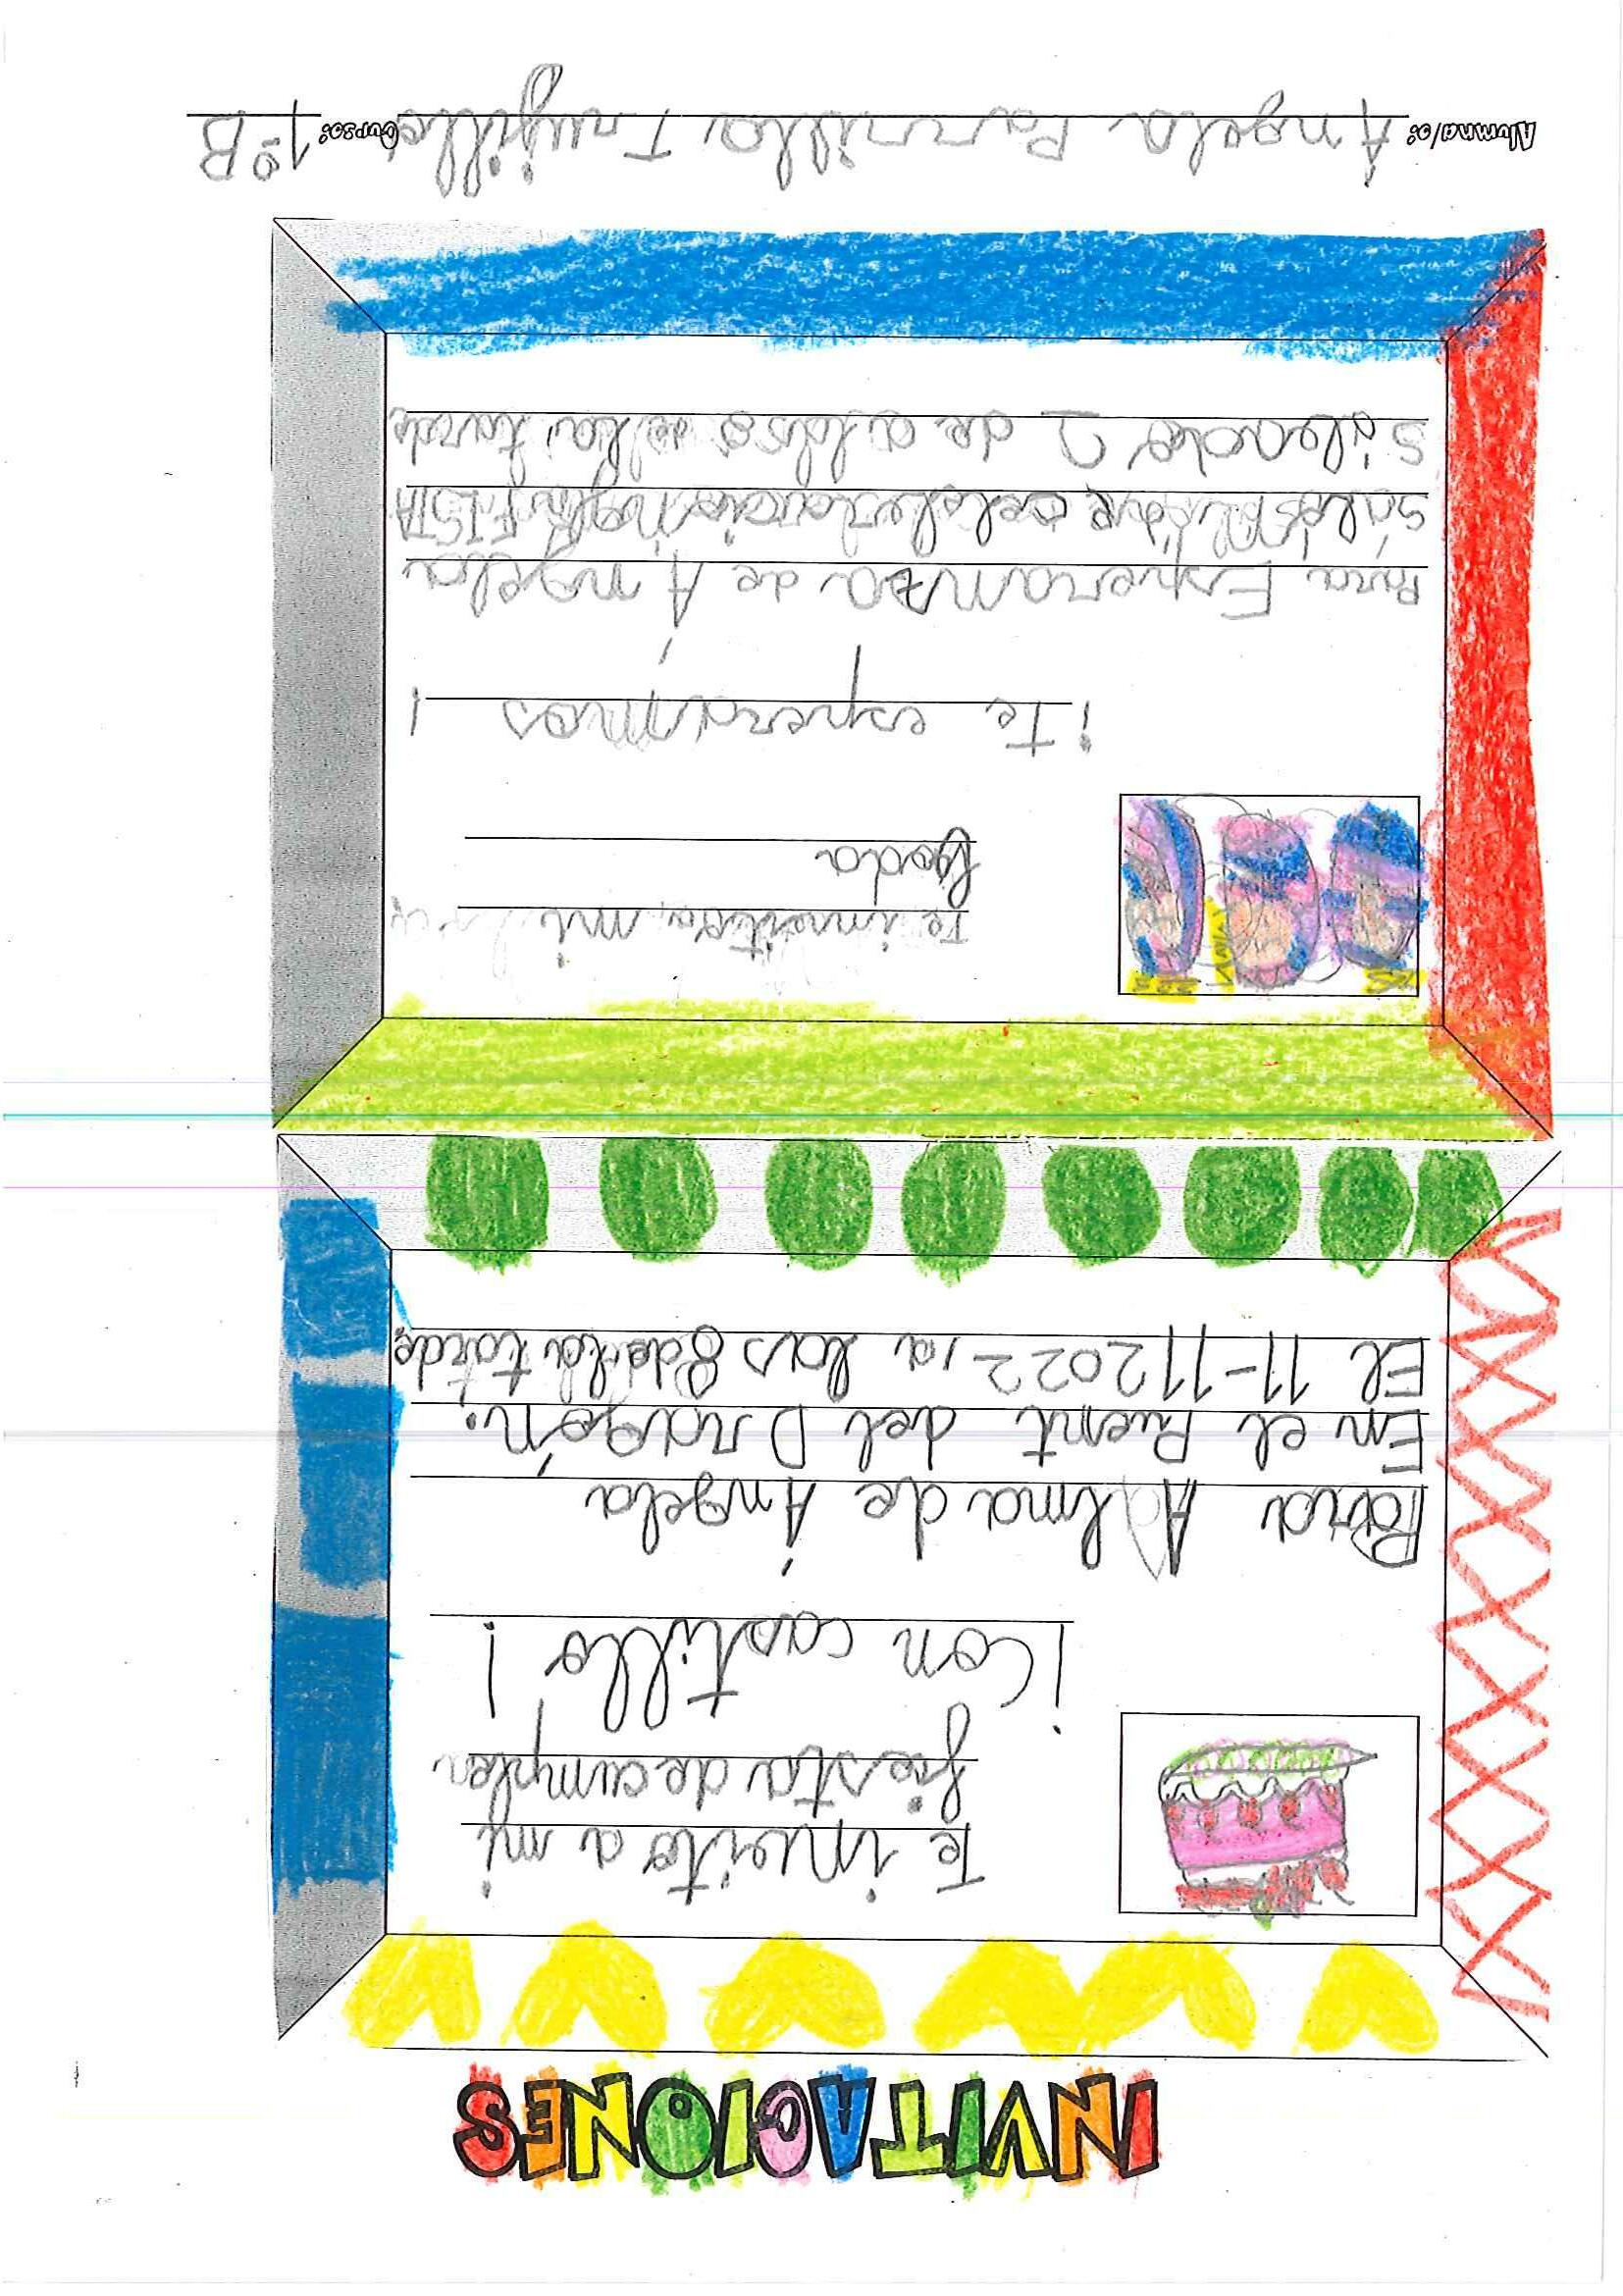 INVITACIONES
Te invito a mi
fiesta de cumples
¡Con castillo!
Para Alma de Ángela
En el Puent del Dragón.
El 11-11 2022, a las 8 de la tarde.
Te invito a mi
boda
¡Te esperamos!
Para Esperanza de Ángela
FISTA
de a las 8 de la tarde
Alumna/o: Ángela Parrilla Trujillo Curso: 1º B